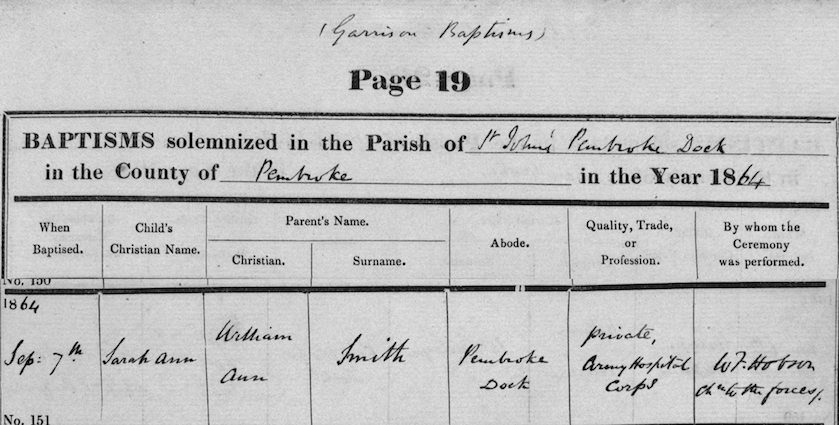 (Garrison Baptisms)
Page 19
BAPTISMS solemnized in the Parish of St John's Pembroke Dock
in the County of Pembroke in the Year 1864
When Baptised.
Child's Christian Name.
Parent's Name.
Christian.
Surname.
Abode.
Quality, Trade, or Profession.
By whom the Ceremony was performed.
No. 150
1864
Sep: 7th
Sarah Ann
William
Ann
Smith
Pembroke
Dock
private,
Army Hospital
Corps
W.F. Hobson
Chn to the forces/.
No. 151